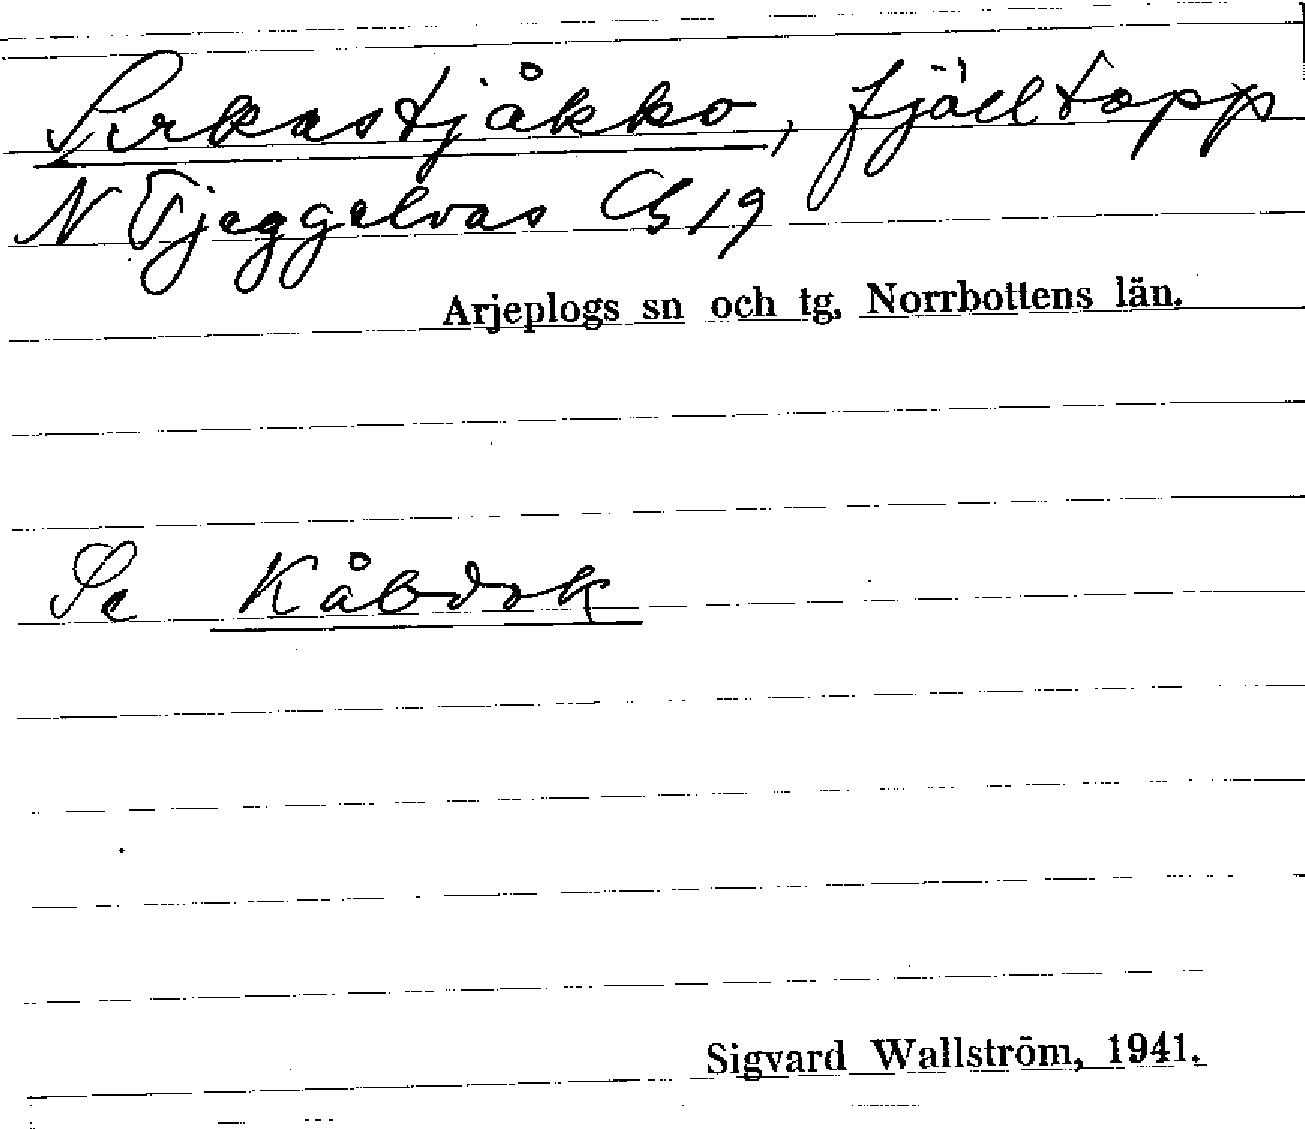 Sirkastjåkko, fjälltopp
N Tjeggelvas C5 19
Arjeplogs sn och tg, Norrbottens län.
Se Kåbdok
Sigvard Wallström, 1941.